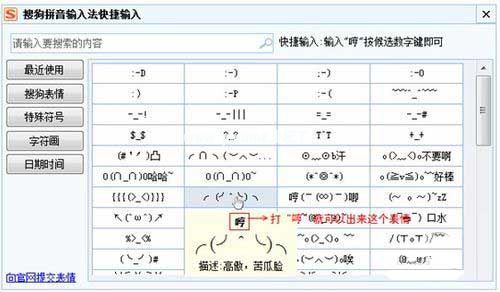 搜狗拼音输入法快捷输入
请输入要搜索的内容
快捷输入:输入“哼”按候选数字键即可
最近使用
搜狗表情
特殊符号
字符画
日期时间
向官网提交表情
:-D :-) ;-) :-O
:) :-P :-(
-_-! -_-||| =_= -_-#
$_$ ?_? T^T +_+
(#‵′)凸 ⊙﹏⊙b汗 o(>_<)o不要啊
O(∩_∩)O哈哈~ O(∩_∩)O~ (*^@^*) o(≧v≦)o~~好棒
{{{(>_<)}}} 哼(￣(∞)￣)唧 (~ o ~)~zZ
↖(^ω^)↗ 口水
哼
打“哼”就可以出来这个表情
%>_<% ~o(>_<)o ~ /(ㄒoㄒ)/~~
描述:高傲，苦瓜脸